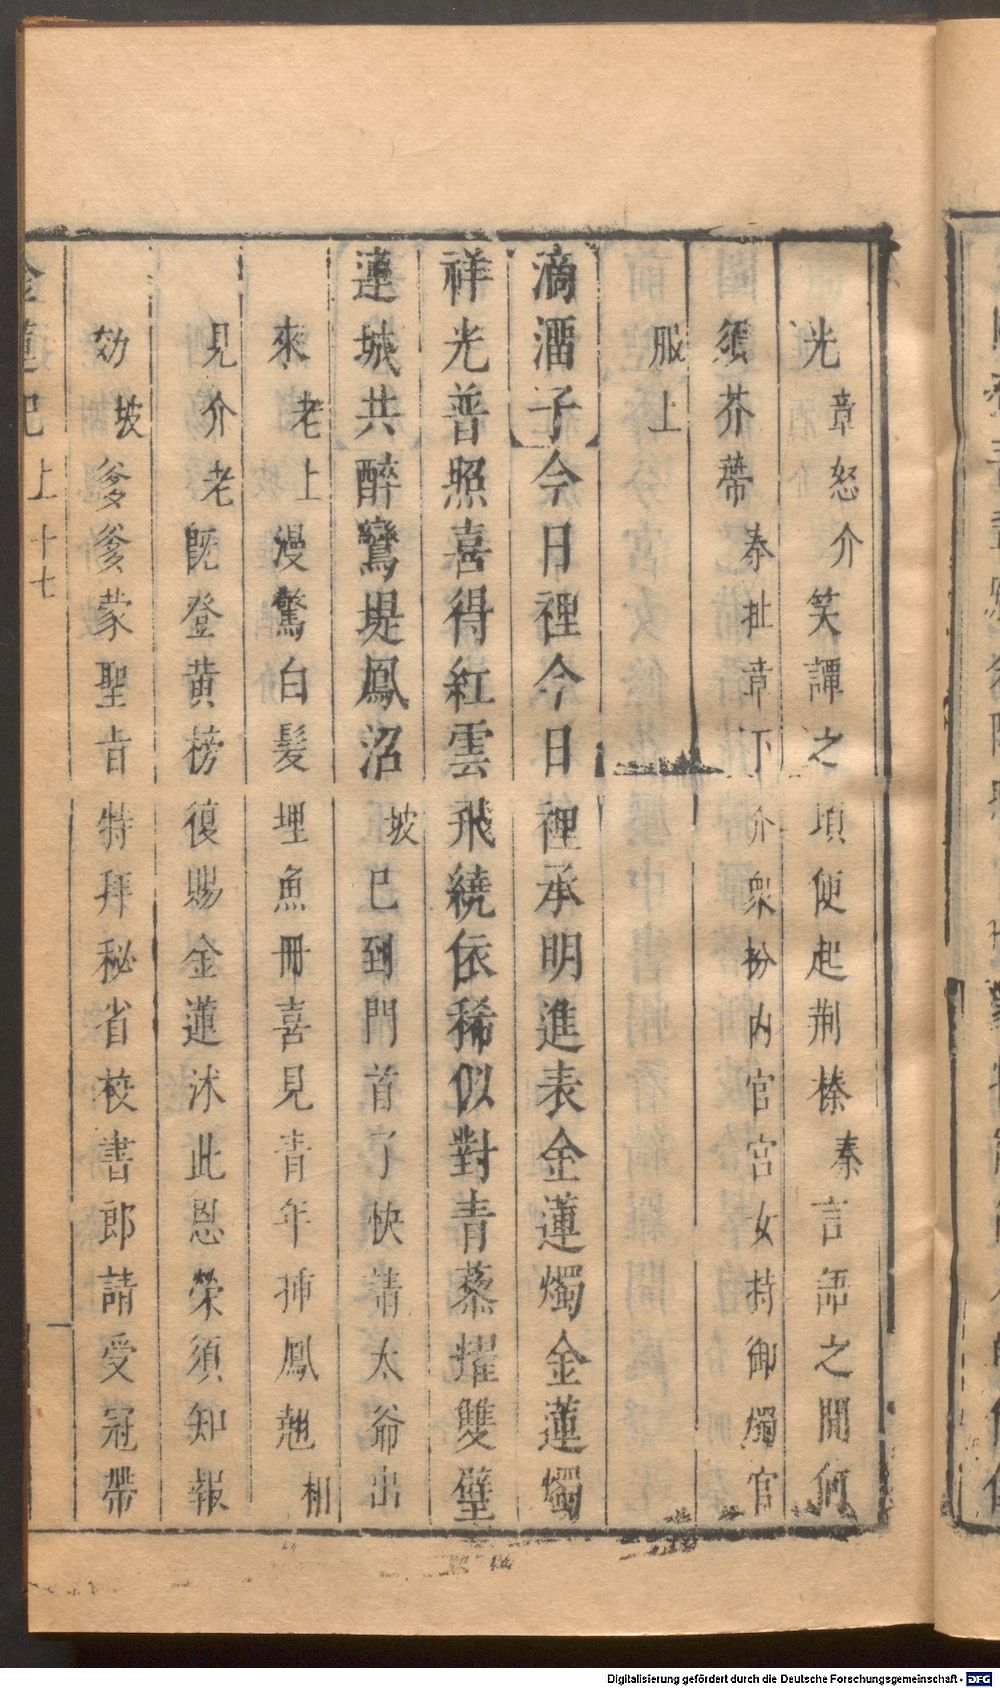 光章怒介笑譚之頃便起荆榛秦言語之間何
須芥蔕秦扯章下介衆扮内官宮女持御燭官
服上
滴溜子今日裡今日裡承明進表金蓮燭金蓮燭
祥光普照喜得紅雲飛繞依稀似對青藜耀雙璧
連城共醉鸞堤鳳沼坡巳到門首了快請太爺出
來老上漫驚白髮埋魚冊喜見青年挿鳳翹相
見介老旣登黄榜復賜金蓮沐此恩榮須知報
効坡爹爹蒙聖旨特拜秘省校書郎請受冠帶
金蓮記 上 十七
Digitalisierung gefördert durch die Deutsche Forschungsgemeinschaft - DFG